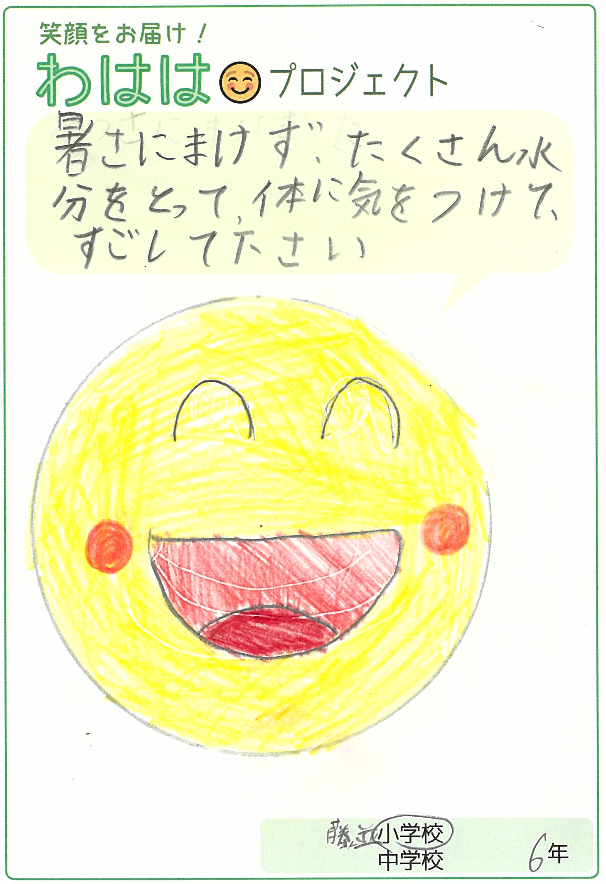 笑顔をお届け!
わははプロジェクト
暑さにまけず、たくさん水
分をとって、体に気をつけて、
すごして下さい
藤並小学校
中学校
6年